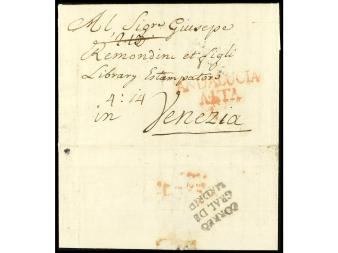 Al Sigre Giusepe
Remondini et figli
Library Estampators
ANDALUCIA
ALTA
4:14
in Venezia
CORREO
GRAL DE
MADRID